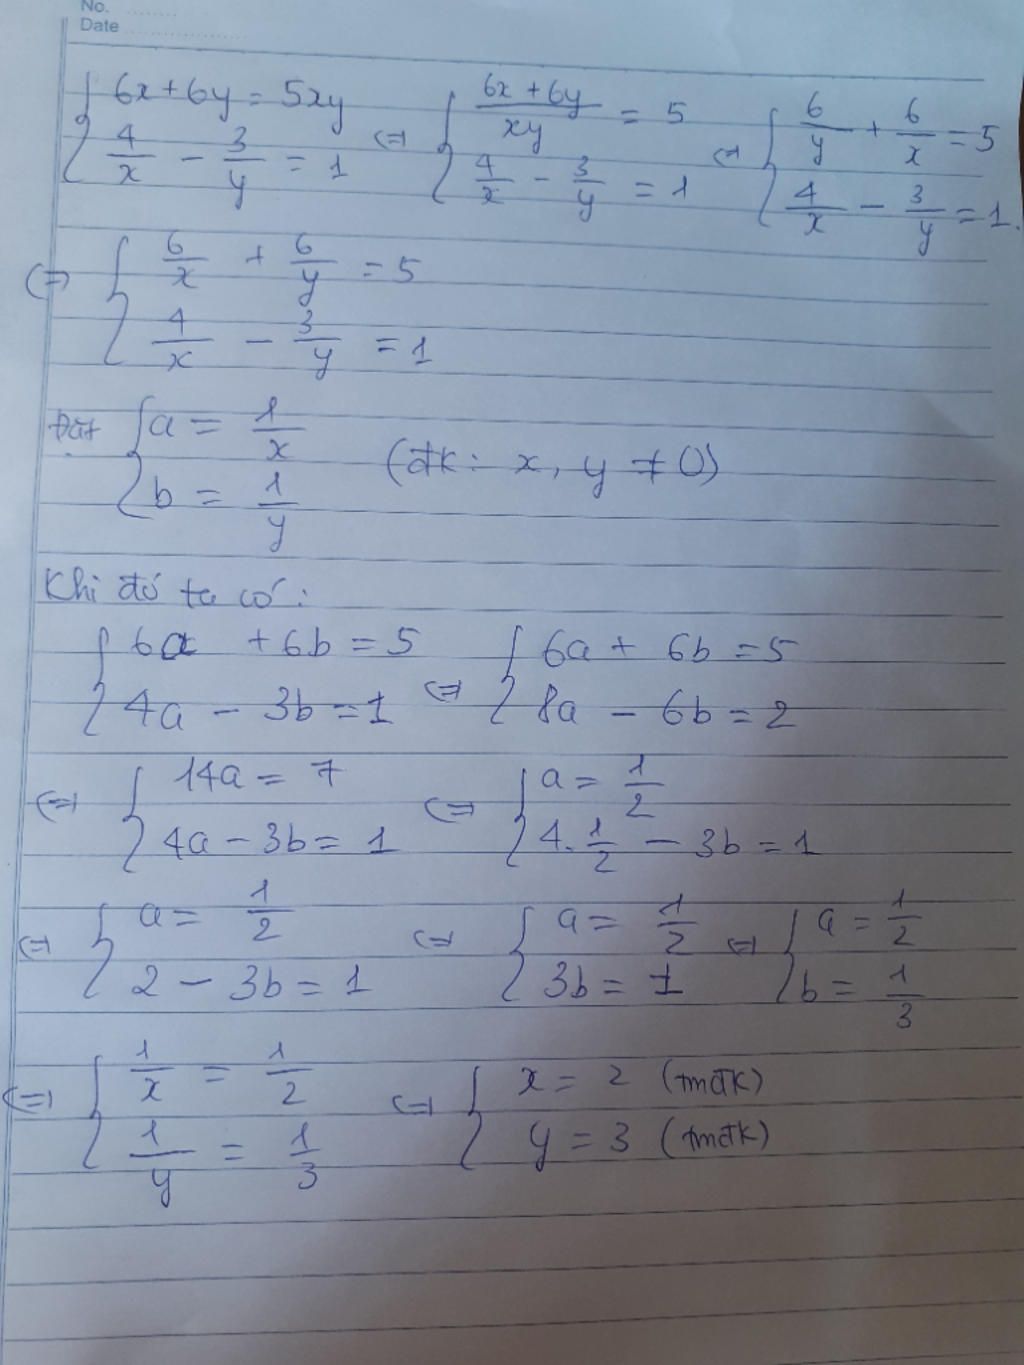 No. ........
Date ....................
{ 6x + 6y = 5xy ; 4/x - 3/y = 1 <=> { (6x + 6y)/xy = 5 ; 4/x - 3/y = 1 <=> { 6/y + 6/x = 5 ; 4/x - 3/y = 1.
<=> { 6/x + 6/y = 5 ; 4/x - 3/y = 1
Đặt { a = 1/x ; b = 1/y (đk: x, y ≠ 0)
Khi đó ta có:
{ 6a + 6b = 5 ; 4a - 3b = 1 <=> { 6a + 6b = 5 ; 8a - 6b = 2
<=> { 14a = 7 ; 4a - 3b = 1 <=> { a = 1/2 ; 4. 1/2 - 3b = 1
<=> { a = 1/2 ; 2 - 3b = 1 <=> { a = 1/2 ; 3b = 1 <=> { a = 1/2 ; b = 1/3
<=> { 1/x = 1/2 ; 1/y = 1/3 <=> { x = 2 (tmđk) ; y = 3 (tmđk)